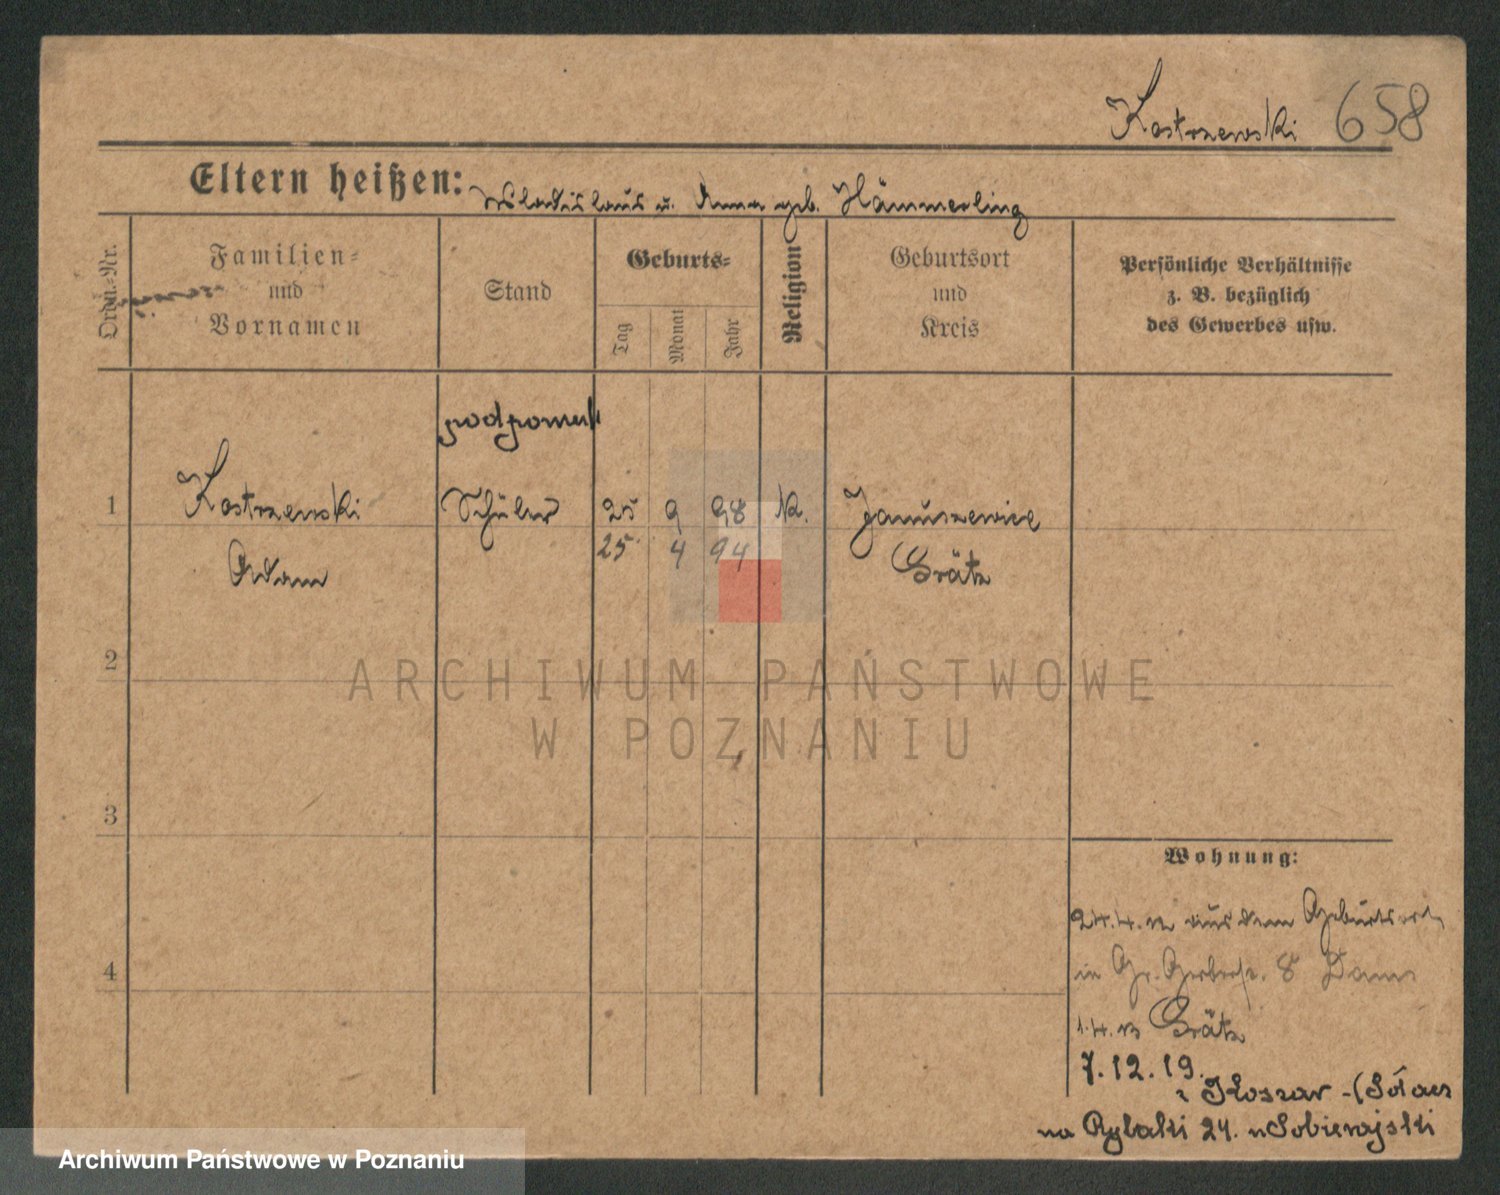 Kostrzewski 658
Eltern heißen: Wladislaus u. Anna geb. Hämmerling
Ordn.-Nr.
Familien-
und
Vornamen
Stand
Geburts-
Tag
Monat
Jahr
Religion
Geburtsort
und
Kreis
Persönliche Verhältnisse
z. B. bezüglich
des Gewerbes usw.
1
Kostrzewski
Adam
Schüler
25 9 98
25 4 94
K.
Januszewice
Grätz
2
3
4
Wohnung:
24.4.12 aus dem Geburtsort
in Gr. Gerberstr. 8
1.4.13 Grätz
7.12.19.
z Koszar
na Rybaki 24. u Sobierajski
ARCHIWUM PAŃSTWOWE
W POZNANIU
Archiwum Państwowe w Poznaniu